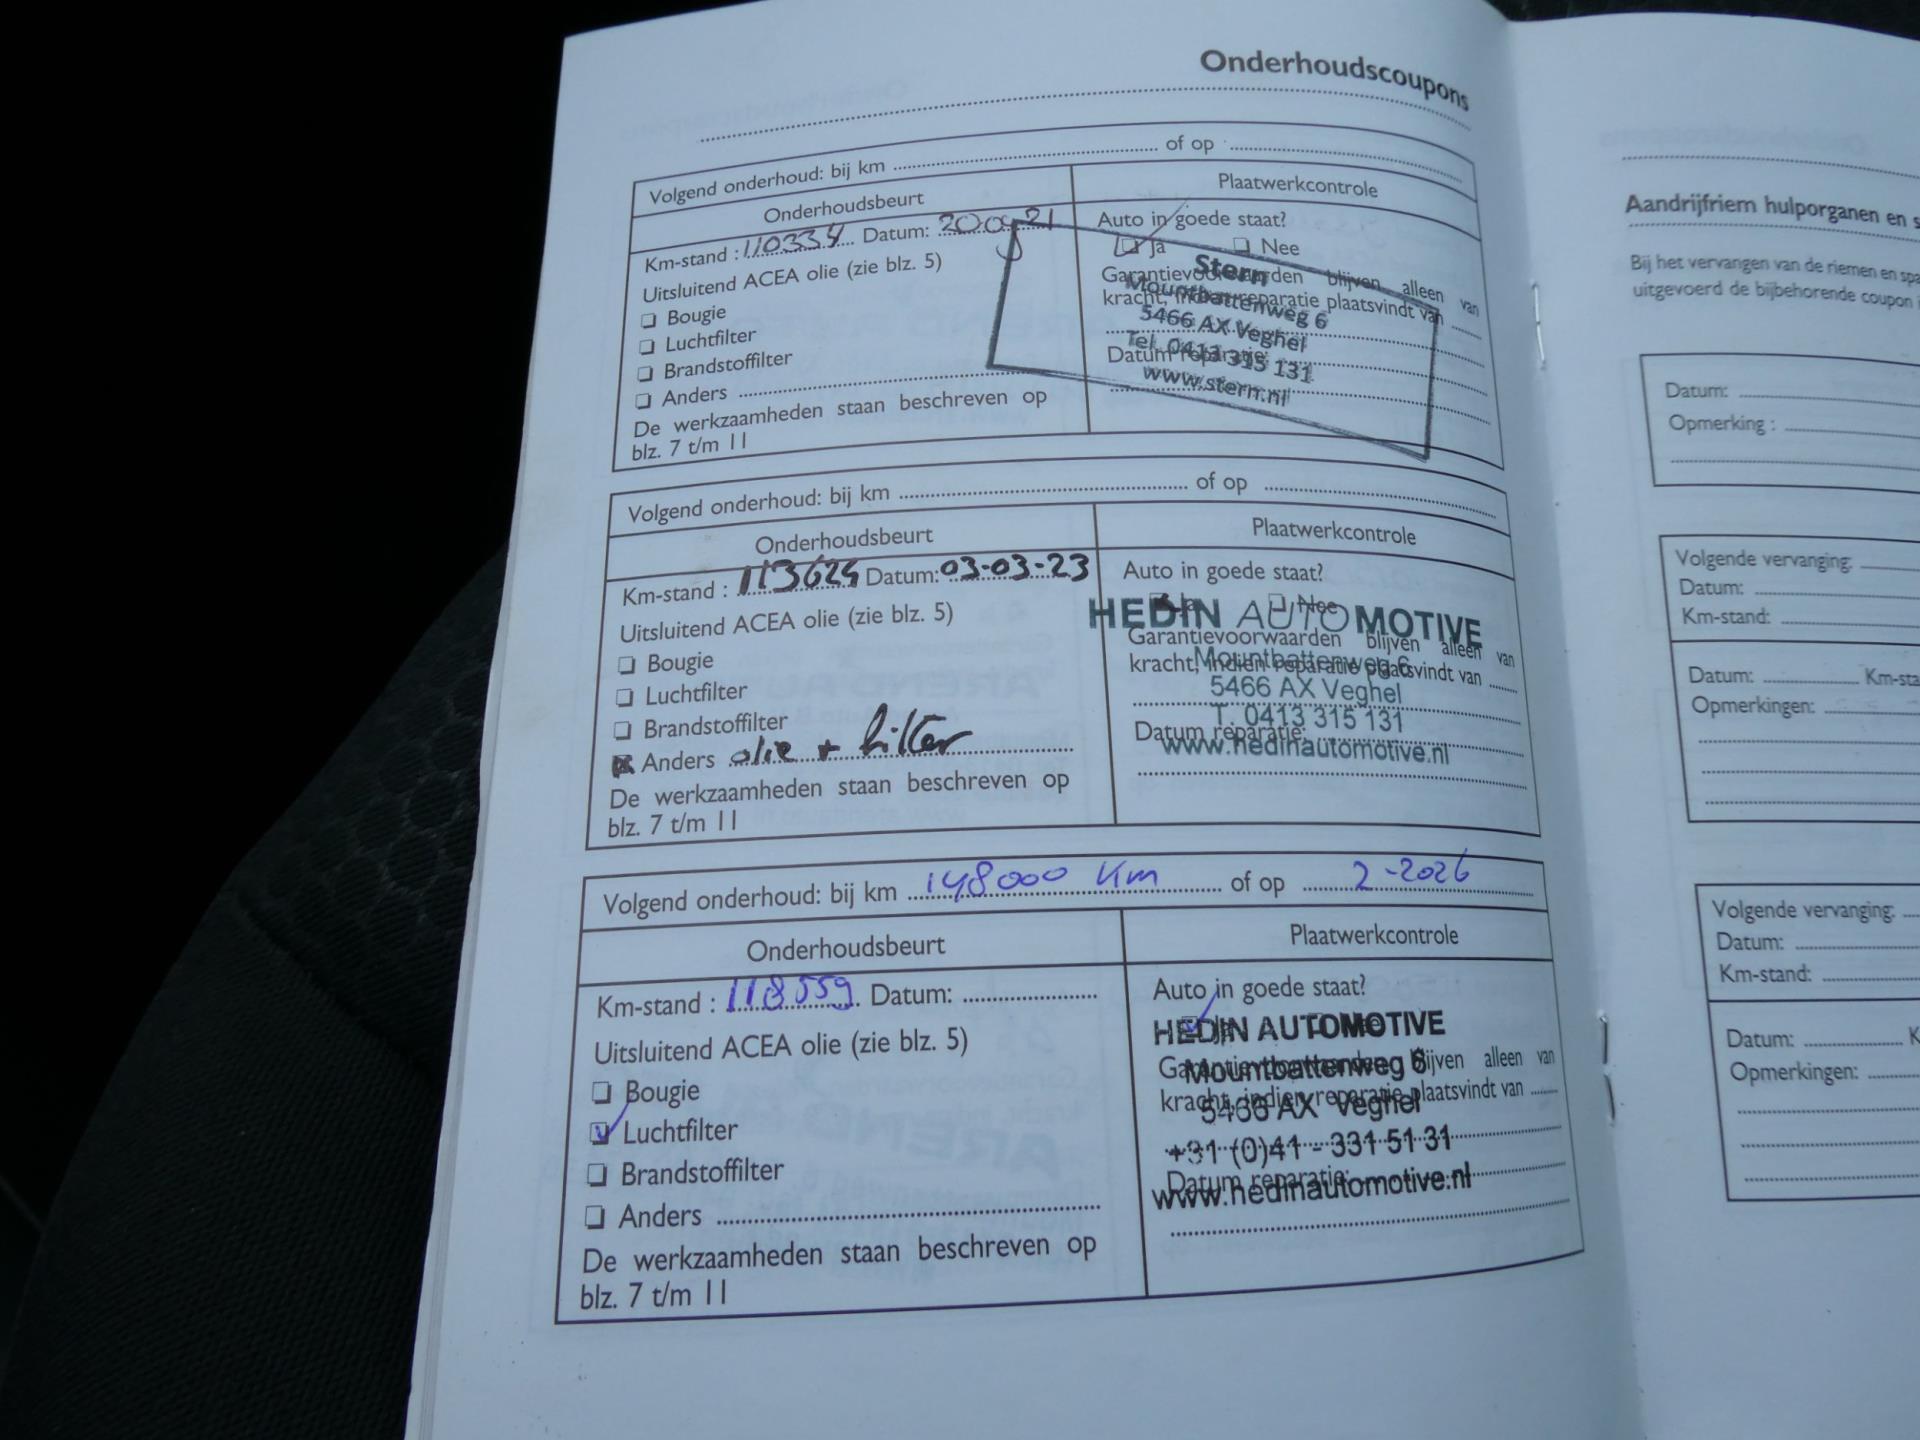 Onderhoudscoupons
Volgend onderhoud: bij km of op
Onderhoudsbeurt
Plaatwerkcontrole
Km-stand : 110334 Datum:
Auto in goede staat?
Ja Nee
Uitsluitend ACEA olie (zie blz. 5)
Garantievoorwaarden blijven alleen van
kracht, indien reparatie plaatsvindt van
Bougie
Luchtfilter
Brandstoffilter
Datum reparatie:
Anders
De werkzaamheden staan beschreven op
blz. 7 t/m 11
Stern
Mountbattenweg 6
5466 AX Veghel
Tel. 0413 315 131
www.stern.nl
Volgend onderhoud: bij km of op
Onderhoudsbeurt
Plaatwerkcontrole
Km-stand : 113624 Datum: 03-03-23
Auto in goede staat?
Ja Nee
Uitsluitend ACEA olie (zie blz. 5)
Garantievoorwaarden blijven alleen van
kracht, indien reparatie plaatsvindt van
Bougie
Luchtfilter
Brandstoffilter
Datum reparatie:
Anders olie + filter
De werkzaamheden staan beschreven op
blz. 7 t/m 11
HEDIN AUTOMOTIVE
Mountbattenweg 6
5466 AX Veghel
T. 0413 315 131
www.hedinautomotive.nl
Volgend onderhoud: bij km 148000 Km of op 2-2026
Onderhoudsbeurt
Plaatwerkcontrole
Km-stand : 118559 Datum:
Auto in goede staat?
Uitsluitend ACEA olie (zie blz. 5)
Garantievoorwaarden blijven alleen van
kracht, indien reparatie plaatsvindt van
Bougie
Luchtfilter
Brandstoffilter
Datum reparatie:
Anders
De werkzaamheden staan beschreven op
blz. 7 t/m 11
HEDIN AUTOMOTIVE
Mountbattenweg 6
5466 AX Veghel
+31 (0)41 - 331 51 31
www.hedinautomotive.nl
Aandrijfriem hulporganen en
Bij het vervangen van de riemen en
uitgevoerd de bijbehorende coupon
Datum:
Opmerking :
Volgende vervanging:
Datum:
Km-stand:
Datum:
Opmerkingen:
Volgende vervanging:
Datum:
Km-stand:
Datum:
Opmerkingen: